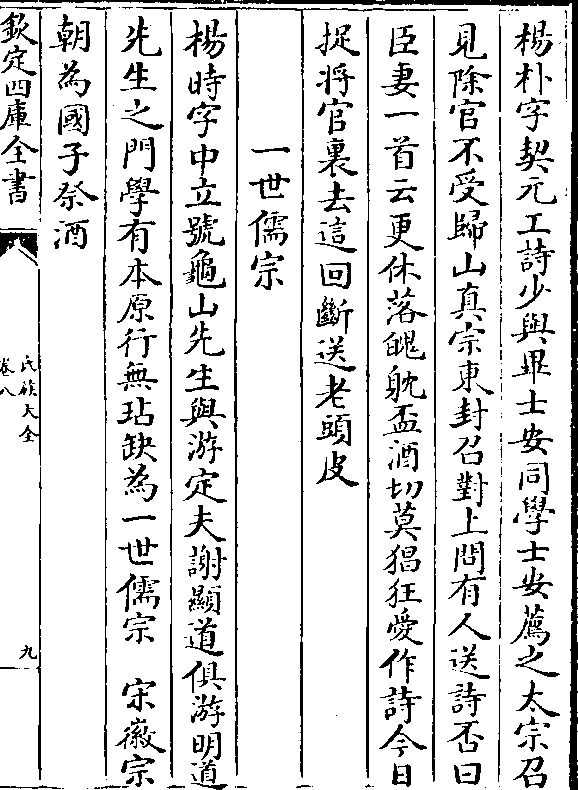 楊朴字契元工詩少與畢士安同學士安薦之太宗召
見除官不受歸山真宗東封召對上問有人送詩否曰
臣妻一首云更休落魄躭盃酒切莫猖狂愛作詩今日
捉將官裏去這回斷送老頭皮
一世儒宗
楊時字中立號龜山先生與游定夫謝顯道俱游明道
先生之門學有本原行無玷缺為一世儒宗　宋徽宗
朝為國子祭酒
欽定四庫全書
氏族大全
卷八
九